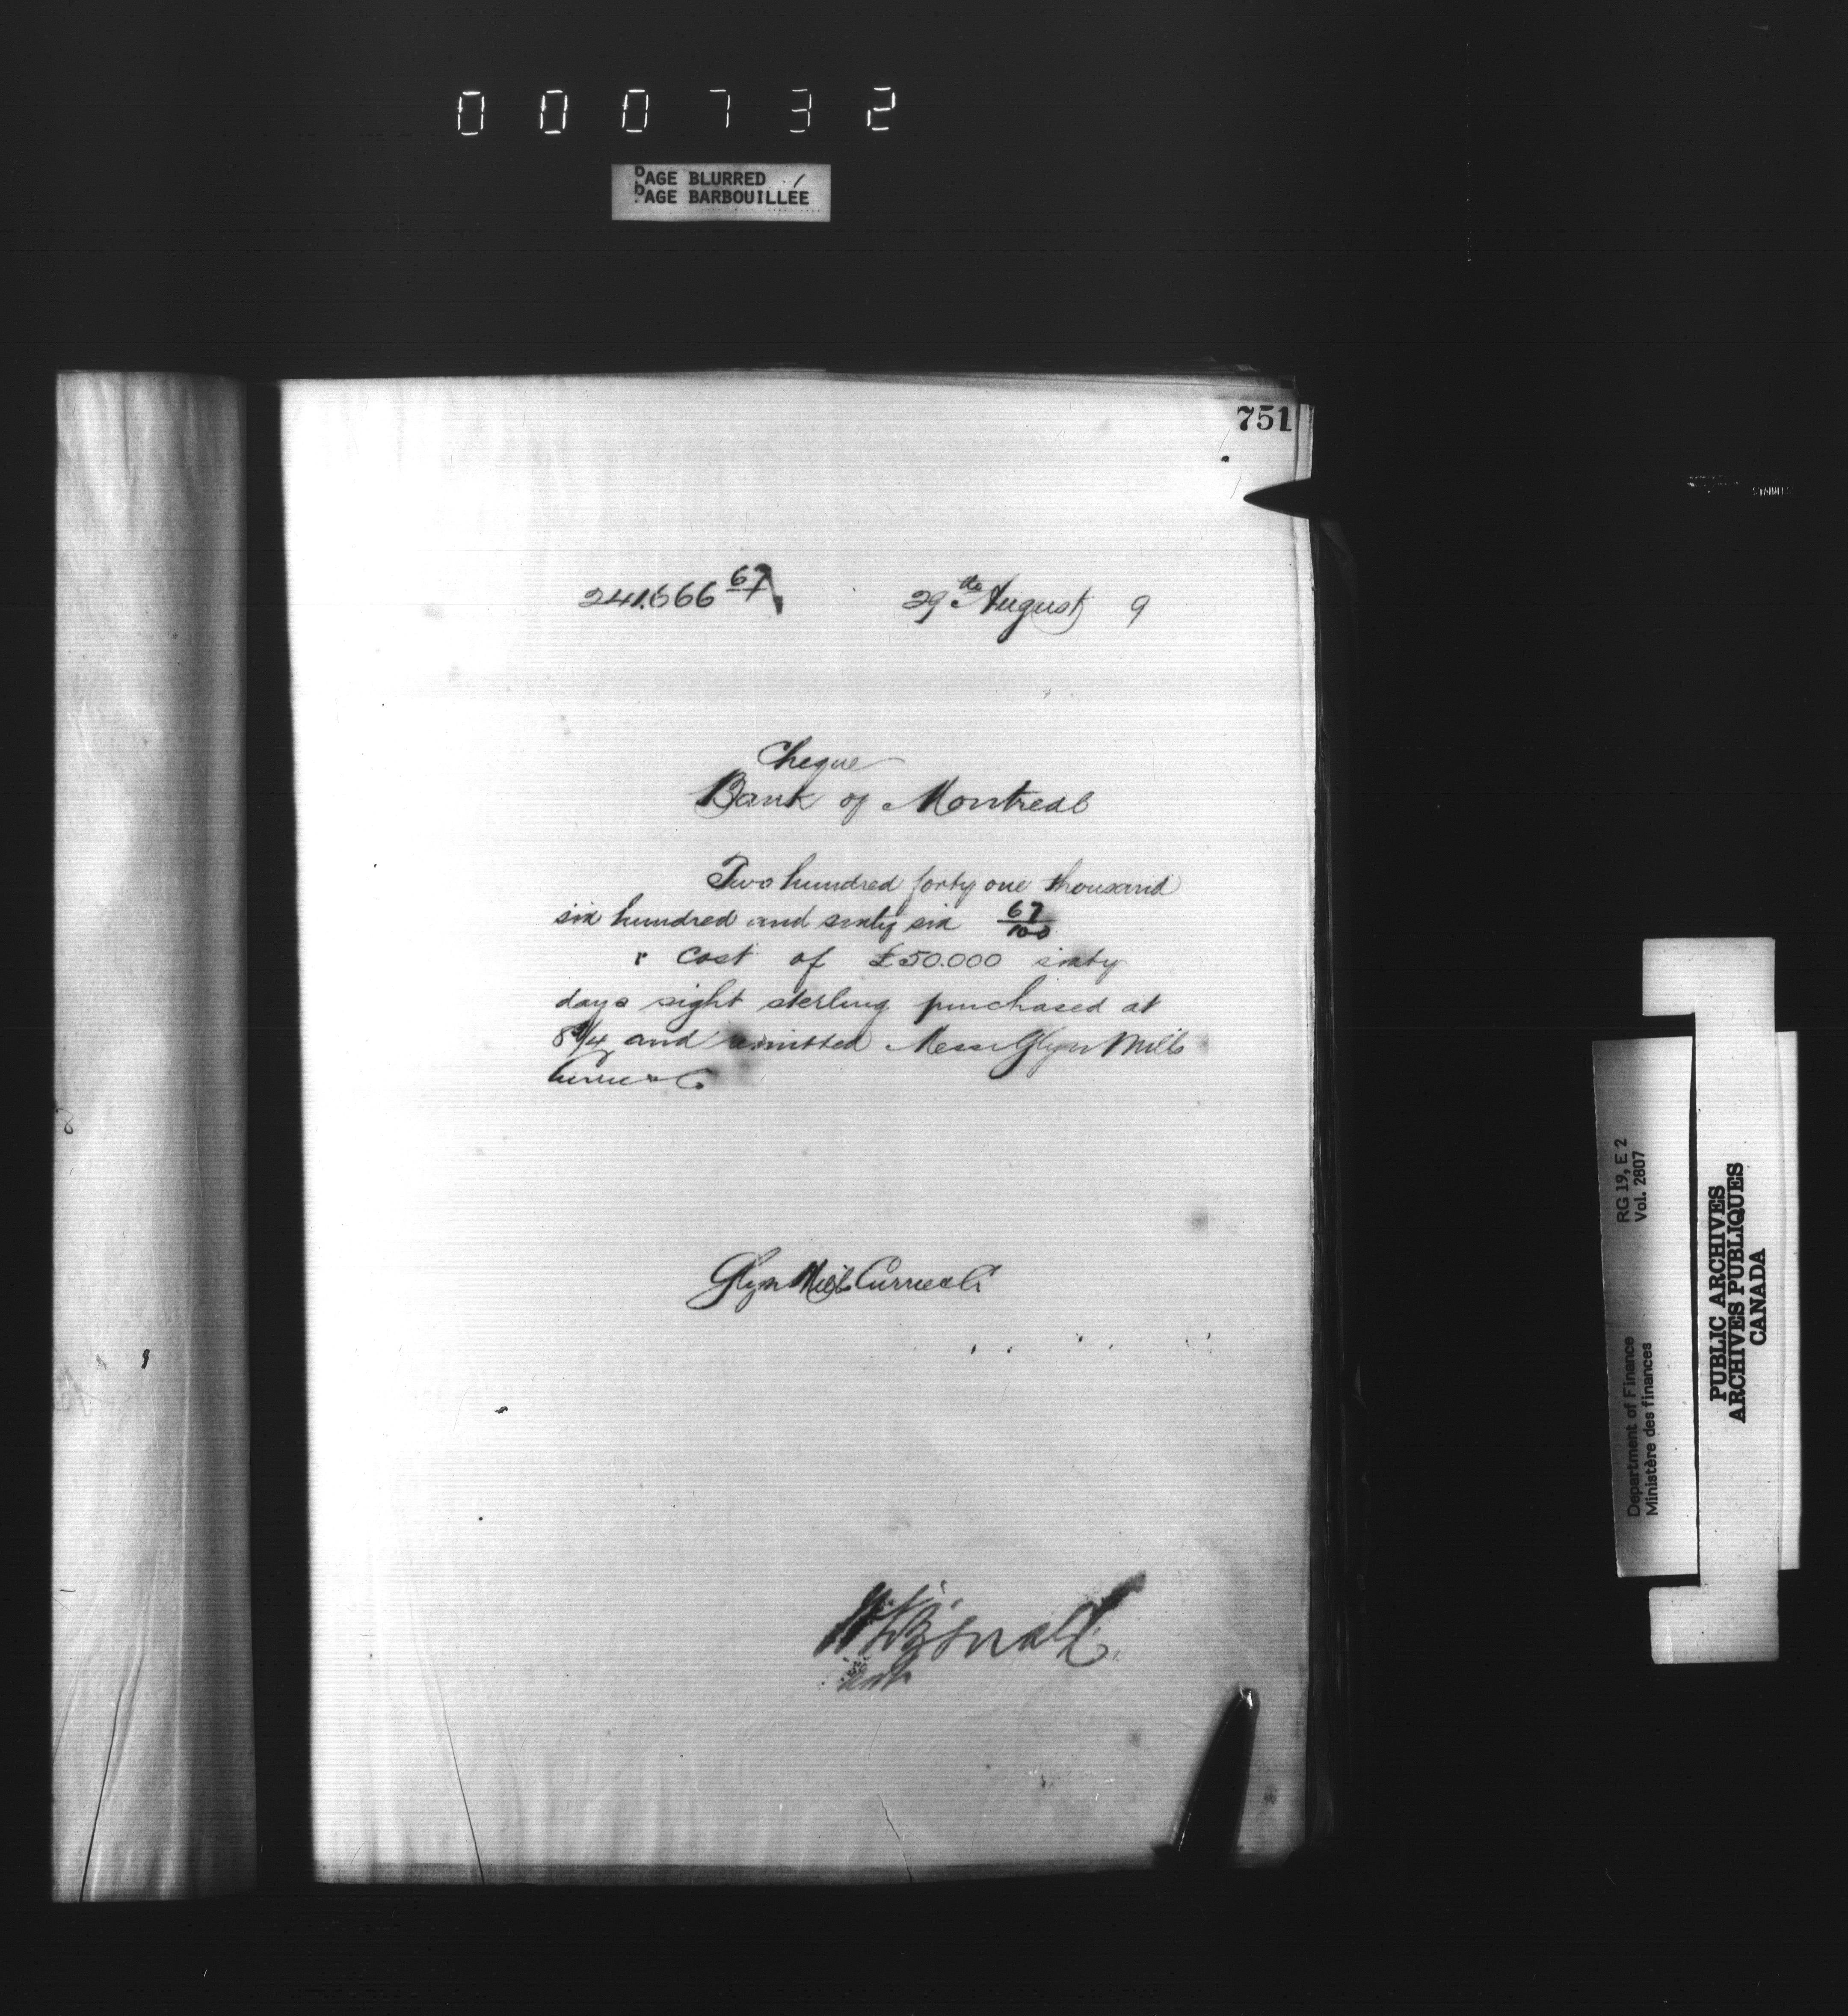 000732
PAGE BLURRED
PAGE BARBOUILLÉE
751
241.666 67
29th August 9
Cheque
Bank of Montreal
Two hundred forty one thousand
six hundred and sixty six 67/100
cost of £50.000 sixty
days sight sterling purchased at
8 3/4 and remitted Messr Glyn Mills
Currie & Co
Glyn Mills Currie & Co
RG 19, E 2
Vol. 2807
Department of Finance
Ministère des finances
PUBLIC ARCHIVES
ARCHIVES PUBLIQUES
CANADA